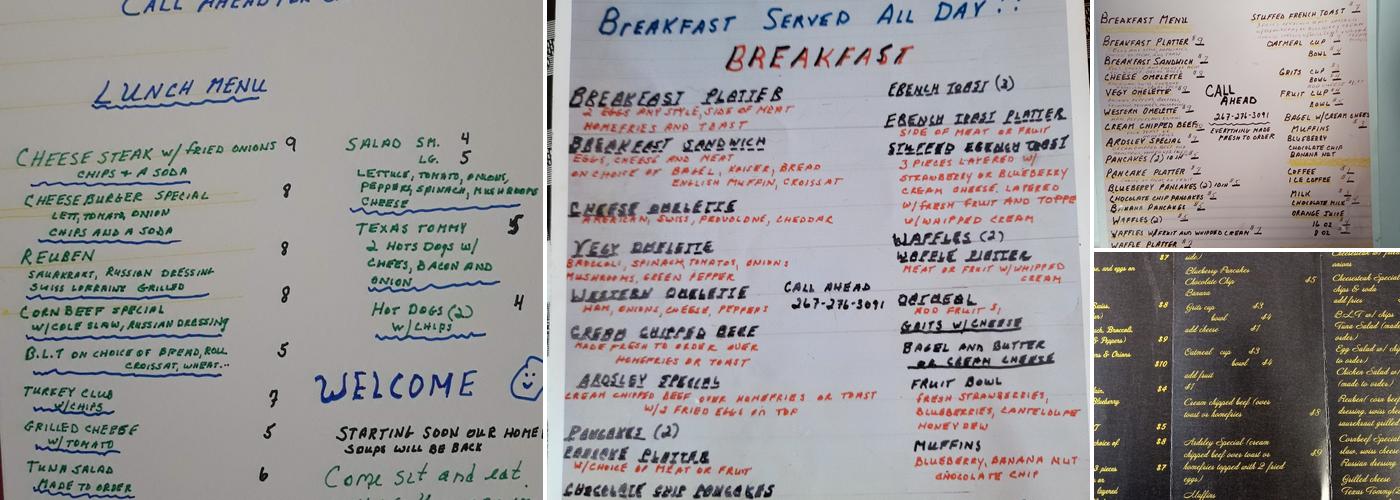 CALL AHEAD FOR
LUNCH MENU
CHEESE STEAK W/ FRIED ONIONS 9
CHIPS & A SODA
CHEESEBURGER SPECIAL 8
LETT, TOMATO, ONION
CHIPS AND A SODA
REUBEN 8
SAUAKRAUT, RUSSIAN DRESSING
SWISS LORRAINE GRILLED
CORN BEEF SPECIAL 8
W/COLE SLAW, RUSSIAN DRESSING
B.L.T ON CHOICE OF BREAD, ROLL 5
CROISSAT, WHEAT...
TURKEY CLUB 7
W/CHIPS
GRILLED CHEESE 5
W/TOMATO
TUNA SALAD 6
MADE TO ORDER
SALAD SM. 4
LG. 5
LETTUCE, TOMATO, ONIONS,
PEPPERS, SPINACH, MUSHROOMS
CHEESE
TEXAS TOMMY 5
2 HOTS DOGS W/
CHEES, BACON AND
ONION
HOT DOGS (2) 4
W/CHIPS
WELCOME
STARTING SOON OUR HOME
SOUPS WILL BE BACK
Come sit and eat.
BREAKFAST SERVED ALL DAY!!
BREAKFAST
BREAKFAST PLATTER
2 EGGS ANY STYLE, SIDE OF MEAT
HOMEFRIES AND TOAST
BREAKFAST SANDWICH
EGGS, CHEESE AND MEAT
ON CHOICE OF BAGEL, KAISER, BREAD
ENGLISH MUFFIN, CROISSAT
CHEESE OMELETTE
AMERICAN, SWISS, PROVOLONE, CHEDDAR
VEGY OMELETTE
BROCCOLI, SPINACH, TOMATOS, ONIONS
MUSHROOMS, GREEN PEPPER
WESTERN OMELETTE
HAM, ONIONS, CHEESE, PEPPERS
CREAM CHIPPED BEEF
MADE FRESH TO ORDER OVER
HOMEFRIES OR TOAST
ARDSLEY SPECIAL
CREAM CHIPPED BEEF OVER HOMEFRIES OR TOAST
W/2 FRIED EGGS ON TOP
PANCAKES (2)
PANCAKE PLATTER
W/CHOICE OF MEAT OR FRUIT
CHOCOLATE CHIP PANCAKES
CALL AHEAD
267-276-3091
FRENCH TOAST (3)
FRENCH TOAST PLATTER
SIDE OF MEAT OR FRUIT
STUFFED FRENCH TOAST
3 PIECES LAYERED W/
STRAWBERRY OR BLUEBERRY
CREAM CHEESE. LAYERED
W/FRESH FRUIT AND TOPPE
W/WHIPPED CREAM
WAFFLES (2)
WAFFLE PLATTER
MEAT OR FRUIT W/WHIPPED
CREAM
OATMEAL
ADD FRUIT $1
GRITS W/CHEESE
BAGEL AND BUTTER
OR CREAM CHEESE
FRUIT BOWL
FRESH STRAWBERRIES,
BLUEBERRIES, CANTELOUPE
HONEYDEW
MUFFINS
BLUEBERRY, BANANA NUT
CHOCOLATE CHIP
BREAKFAST MENU
BREAKFAST PLATTER $9
BREAKFAST SANDWICH
CHEESE OMELETTE
VEGY OMELETTE
WESTERN OMELETTE
CREAM CHIPPED BEEF
ARDSLEY SPECIAL
PANCAKES (2) 10IN
PANCAKE PLATTER
BLUEBERRY PANCAKES (2) 10IN
CHOCOLATE CHIP PANCAKES
BANANA PANCAKES
WAFFLES (2)
WAFFLES W/FRUIT AND WHIPPED CREAM
WAFFLE PLATTER
CALL
AHEAD
267-276-3091
EVERYTHING MADE
FRESH TO ORDER
STUFFED FRENCH TOAST
OATMEAL CUP
BOWL
GRITS CUP
BOWL
FRUIT CUP
BOWL
BAGEL W/CREAM CHEES
MUFFINS
BLUEBERRY
CHOCOLATE CHIP
BANANA NUT
COFFEE
ICE COFFEE
MILK
CHOCOLATE MILK
ORANGE JUICE
16 OZ
8 OZ
$7
and eggs on
$8
ch, Broccoli,
& Peppers) $9
s & Onions
$10
$4
Blueberry
$5
hoice of $8
3 pieces $7
layered
side)
Blueberry Pancakes
Chocolate Chip $5
Banana
Grits cup $3
bowl $4
add cheese $1
Oatmeal cup $3
bowl $4
add fruit
$1
Cream chipped beef (over
toast or homefries $8
Ardsley Special (cream
chipped beef over toast or $9
homefries topped with 2 fried
eggs)
Muffins
onions
Cheesesteak Special
chips & soda
add fries
B.L.T w/ chips
Tuna Salad (made
order)
Egg Salad w/
to order)
Chicken Salad w/
(made to order)
Reuben( corn beef
dressing, swiss chees
sauerkraut grilled
Cornbeef Special
slaw, swiss cheese
Russian dressing
Grilled cheese
Texas Tommy (2